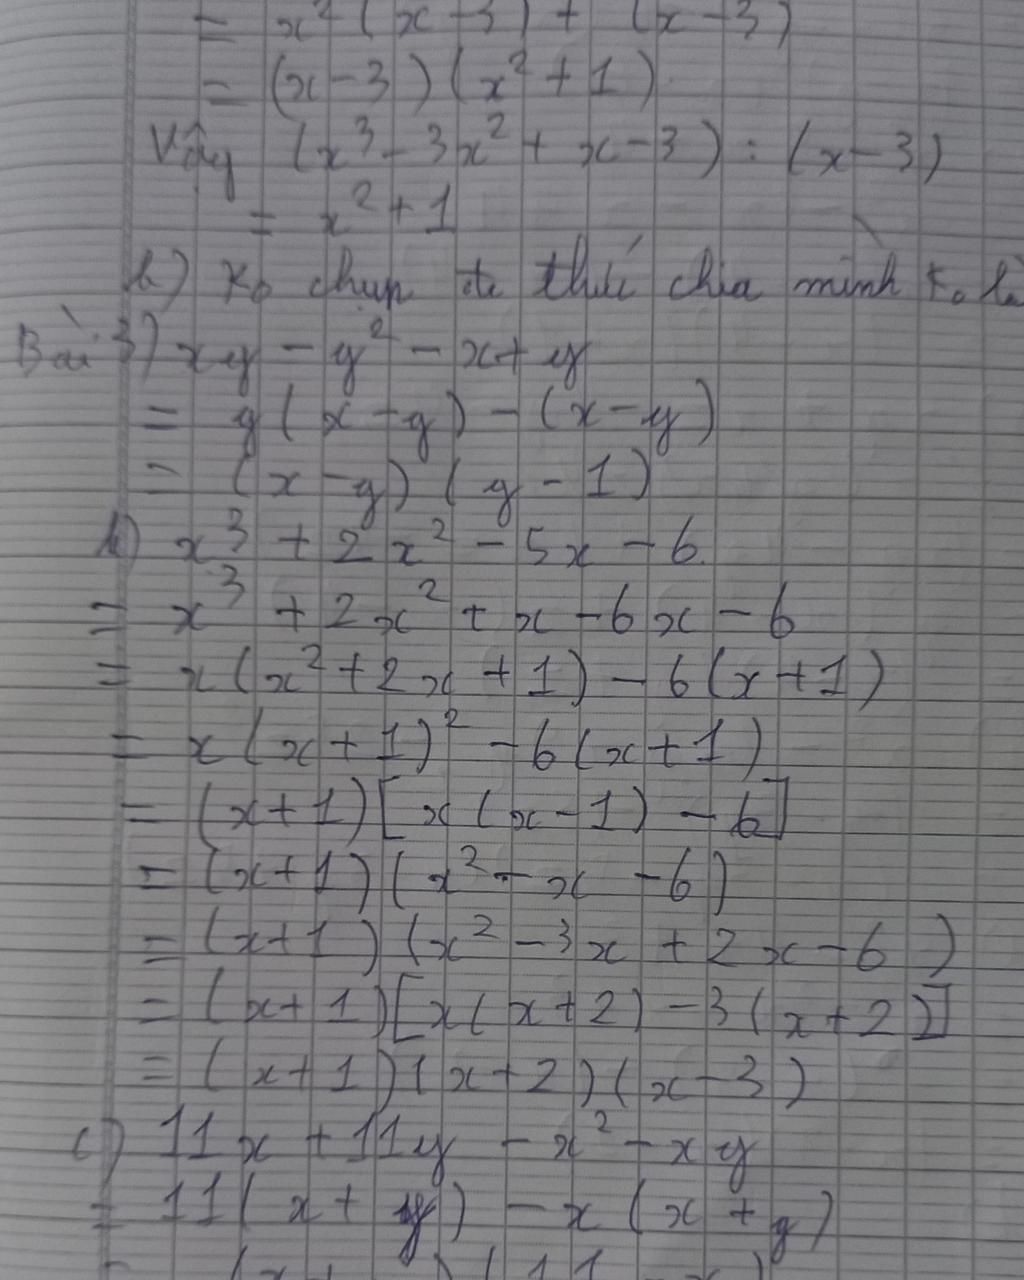 = x² (x - 3) + (x - 3)
= (x - 3) (x² + 1)
Vậy (x³ - 3x² + x - 3) : (x - 3)
= x² + 1
b) Ko chụp đa thức chia mình ko
Bài 3) xy - y² - x + y
= y(x - y) - (x - y)
= (x - y) (y - 1)
b) x³ + 2x² - 5x - 6
= x³ + 2x² + x - 6x - 6
= x(x² + 2x + 1) - 6(x + 1)
= x(x + 1)² - 6(x + 1)
= (x + 1)[x(x - 1) - 6]
= (x + 1)(x² - x - 6)
= (x + 1)(x² - 3x + 2x - 6)
= (x + 1)[x(x + 2) - 3(x + 2)]
= (x + 1)(x + 2)(x - 3)
c) 11x + 11y - x² - xy
= 11(x + y) - x(x + y)